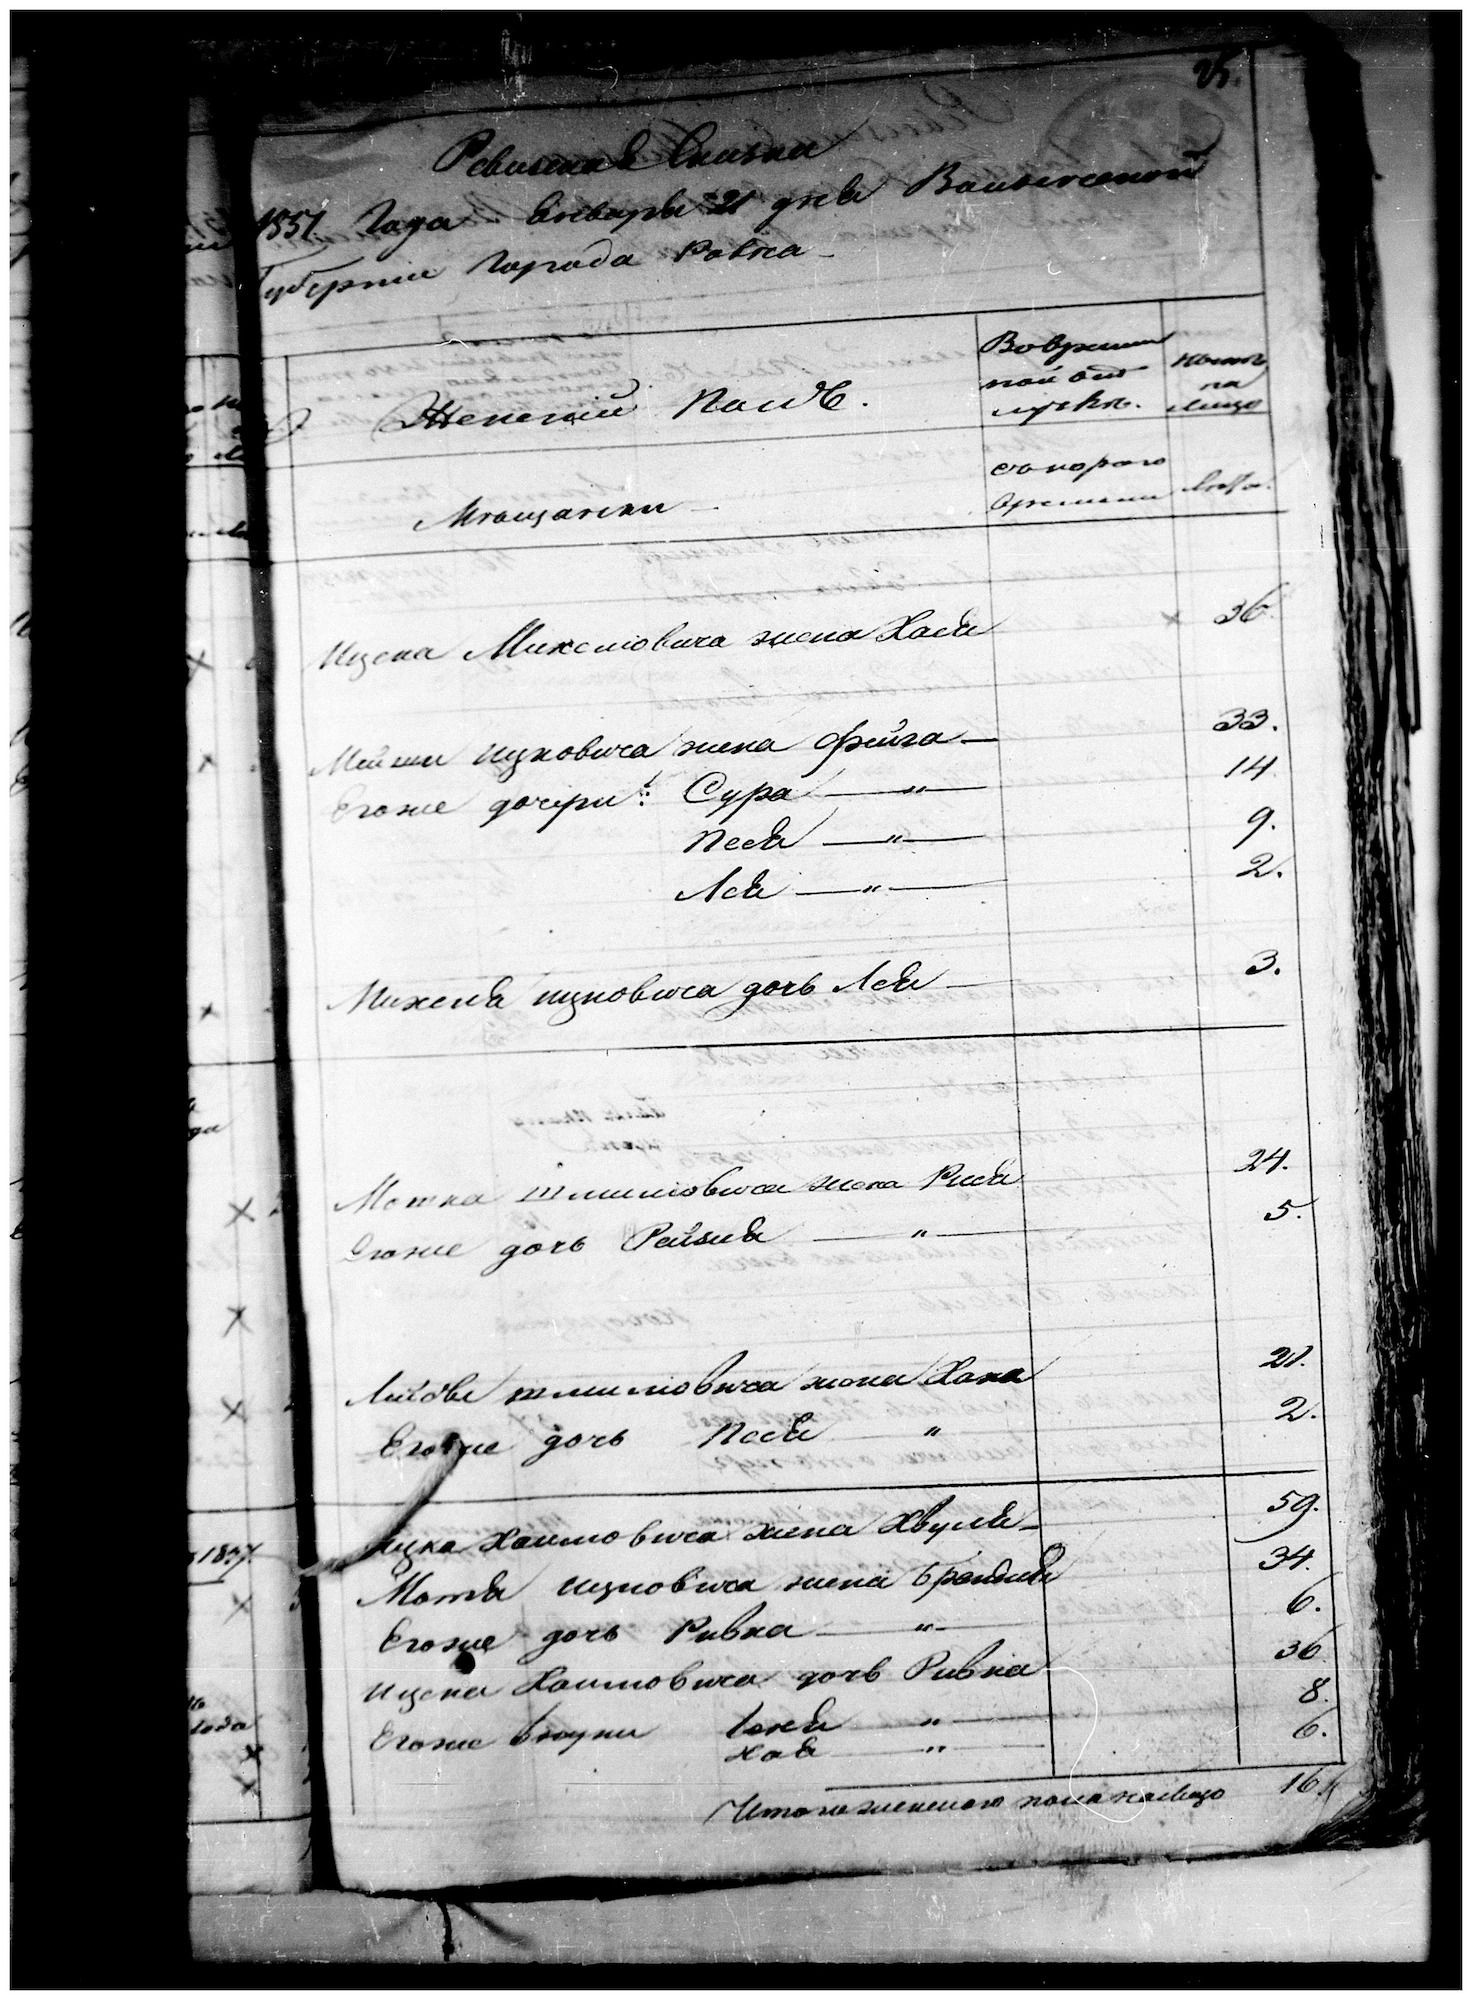 25.
Ревизская Сказка
1851 Года Января 21 дня Волынской
Губернии Города Ровна
Женский Полъ.
Во времян
ной от
лучкѣ.
на
лицо
Мещанки
съ котораго
времени
Лѣта.
Ицка Михелювича жена Хася 36
Мейши Ицковича жена Фейга 33.
Егоже дочери: Сура — " — 14
Песя — " — 9.
Лея — " — 2.
Михеля Ицковича дочь Лея 3.
Мошка Шлиомовича жена Рися 24.
Егоже дочь Рейзля — " — 5.
Лейбы Шлиомовича жена Хана 21.
Егоже дочь Песя " 2.
Ицка Хаимовича жена Хвуля 59.
Мотя Ицковича жена Брейндля 34.
Егоже дочь Ривка — " — 6.
Ицка Хаимовича дочь Ривка 36
Егоже внуки " 8.
Хая — " — 6.
Итого женскаго пола налицо 16
1857
года